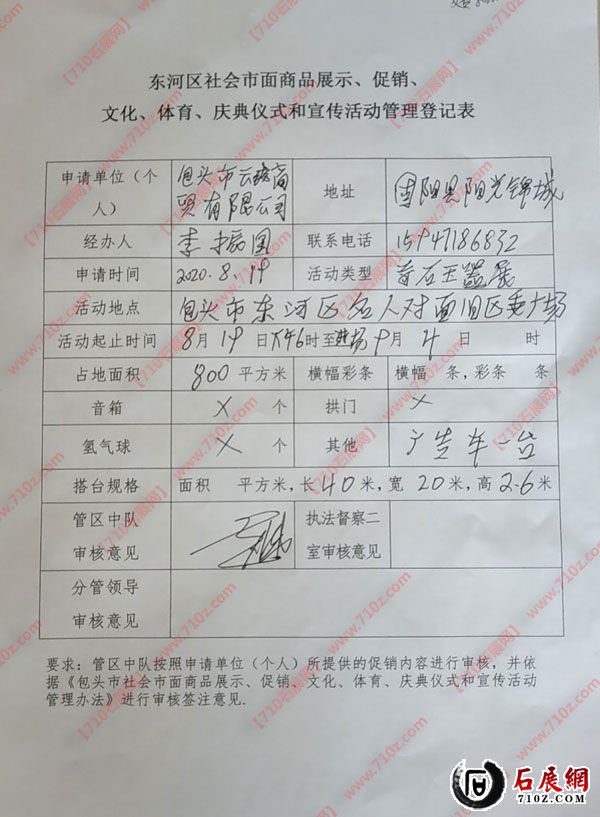 东河区社会市面商品展示、促销、
文化、体育、庆典仪式和宣传活动管理登记表
申请单位(个人) 包头市云瑞商贸有限公司 地址 固阳县阳光锦城
经办人 李振国 联系电话 15947186832
申请时间 2020.8.19 活动类型 奇石玉器展
活动地点 包头市东河区名人对面旧区委广场
活动起止时间 8月19日下午6时至 9月4日 时
占地面积 800平方米 横幅彩条 横幅 条,彩条 条
音箱 × 个 拱门 ×
氢气球 × 个 其他 广告车一台
搭台规格 面积 平方米,长40米,宽20米,高2.6米
管区中队审核意见 执法督察二室审核意见
分管领导审核意见
要求:管区中队按照申请单位(个人)所提供的促销内容进行审核,并依
据《包头市社会市面商品展示、促销、文化、体育、庆典仪式和宣传活动
管理办法》进行审核签注意见.
【710石展网】www.710z.com
石展網
710Z.COM